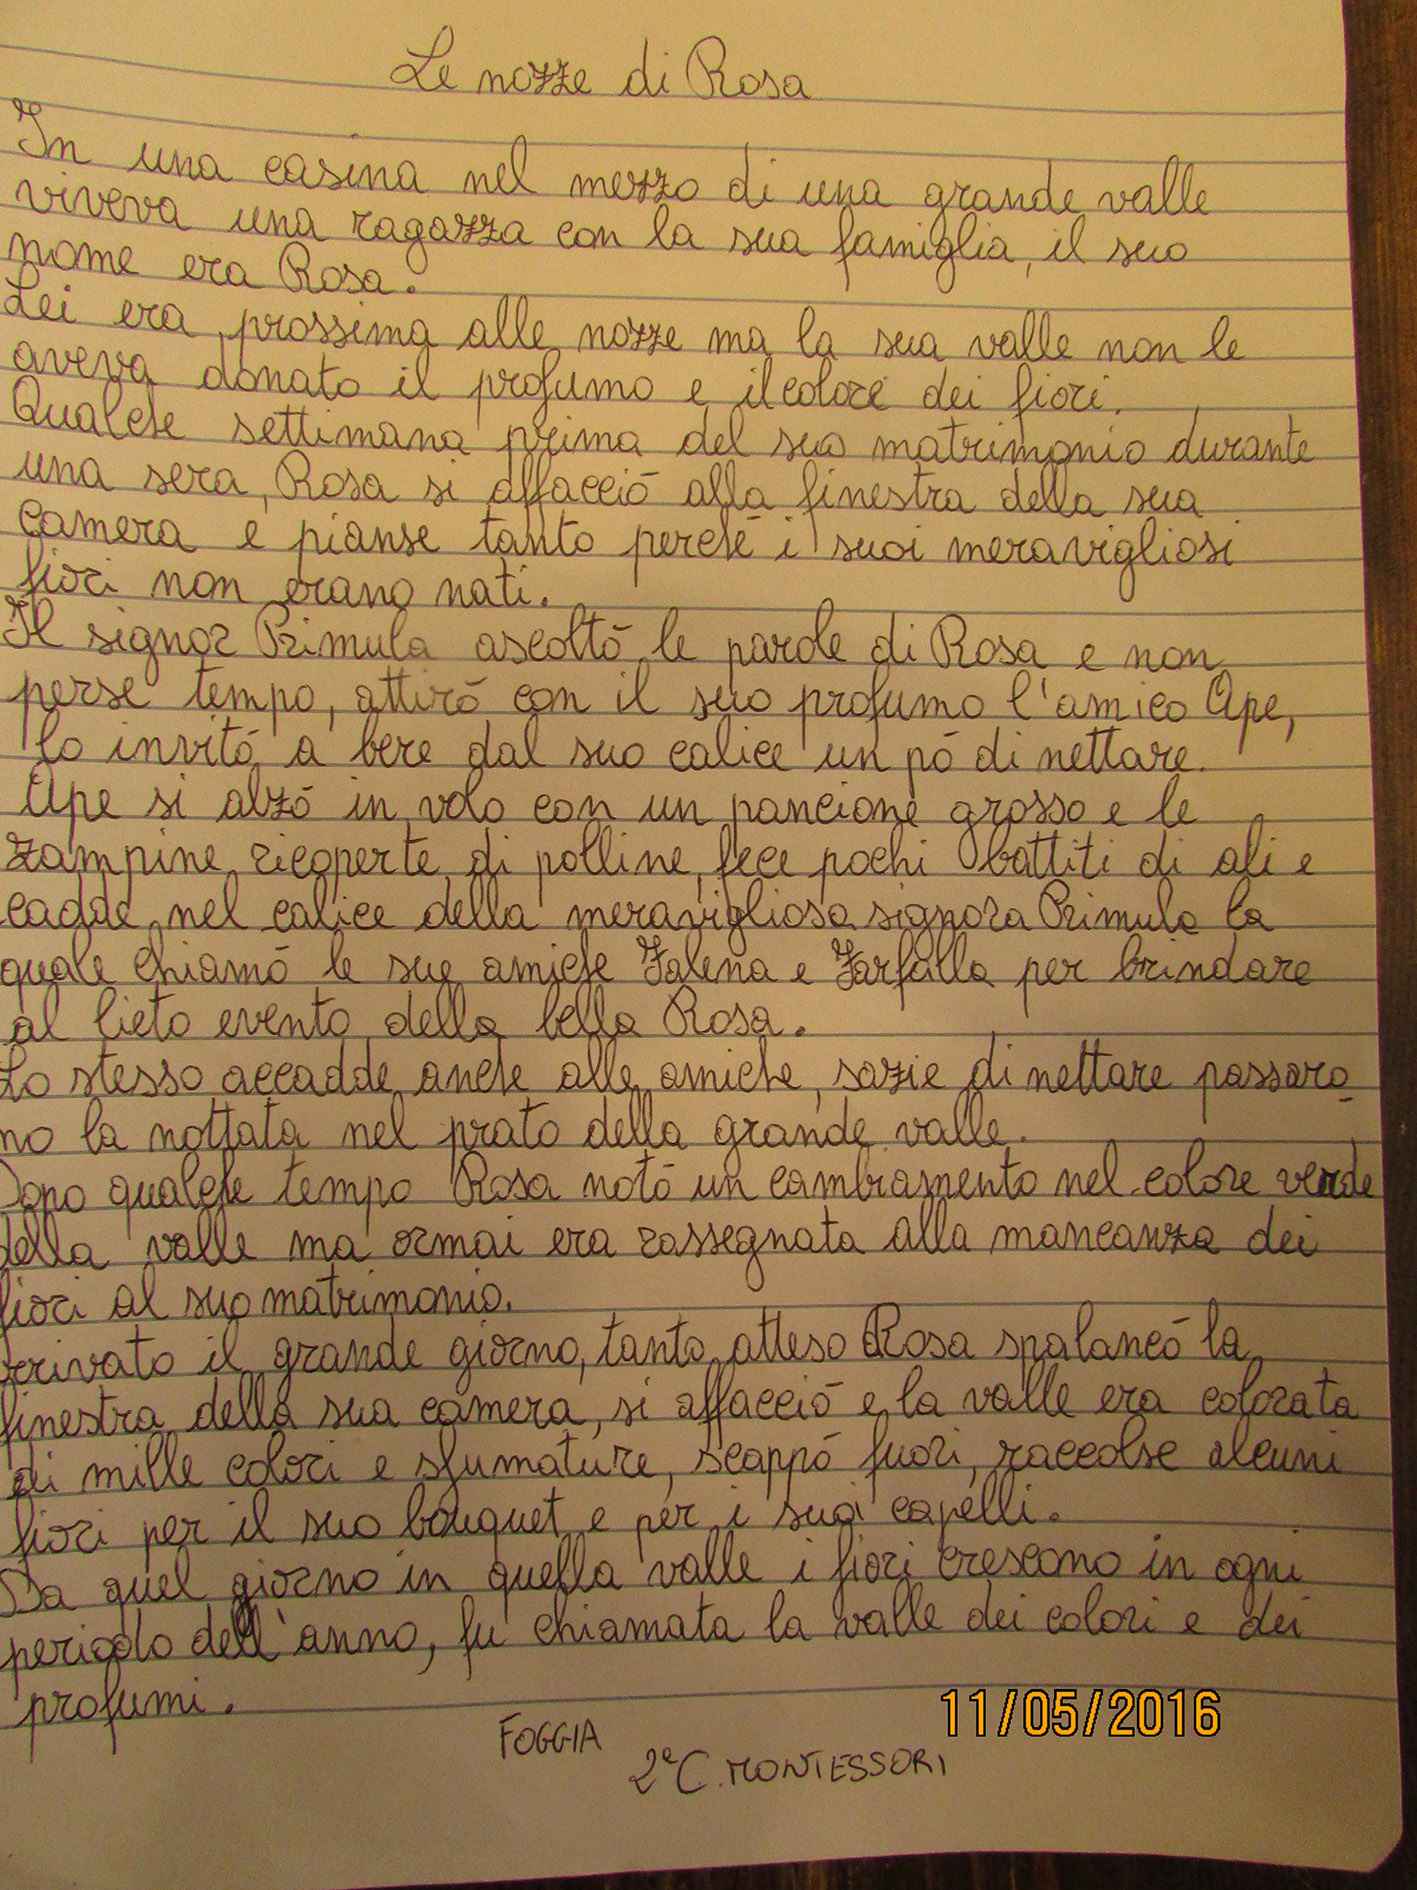 Le nozze di Rosa
In una casina nel mezzo di una grande valle
viveva una ragazza con la sua famiglia, il suo
nome era Rosa.
Lei era prossima alle nozze ma la sua valle non le
aveva donato il profumo e il colore dei fiori.
Qualche settimana prima del suo matrimonio durante
una sera, Rosa si affacciò alla finestra della sua
camera e pianse tanto perché i suoi meravigliosi
fiori non erano nati.
Il signor Primula ascoltò le parole di Rosa e non
perse tempo, attirò con il suo profumo l'amico Ape,
lo invitò a bere dal suo calice un pò di nettare.
Ape si alzò in volo con un pancione grosso e le
zampine ricoperte di polline, fece pochi battiti di ali e
cadde nel calice della meravigliosa signora Primula la
quale chiamò le sue amiche Falena e Farfalla per brindare
al lieto evento della bella Rosa.
Lo stesso accadde anche alle amiche, sazie di nettare passaro_
no la nottata nel prato della grande valle.
Dopo qualche tempo Rosa notò un cambiamento nel colore verde
della valle ma ormai era rassegnata alla mancanza dei
fiori al suo matrimonio.
rrivato il grande giorno, tanto atteso Rosa spalancò la
finestra della sua camera, si affacciò e la valle era colorata
di mille colori e sfumature, scappò fuori, raccolse alcuni
fiori per il suo bouquet e per i suoi capelli.
Da quel giorno in quella valle i fiori crescono in ogni
periodo dell'anno, fu chiamata la valle dei colori e dei
profumi.
11/05/2016
FOGGIA
2°C. MONTESSORI